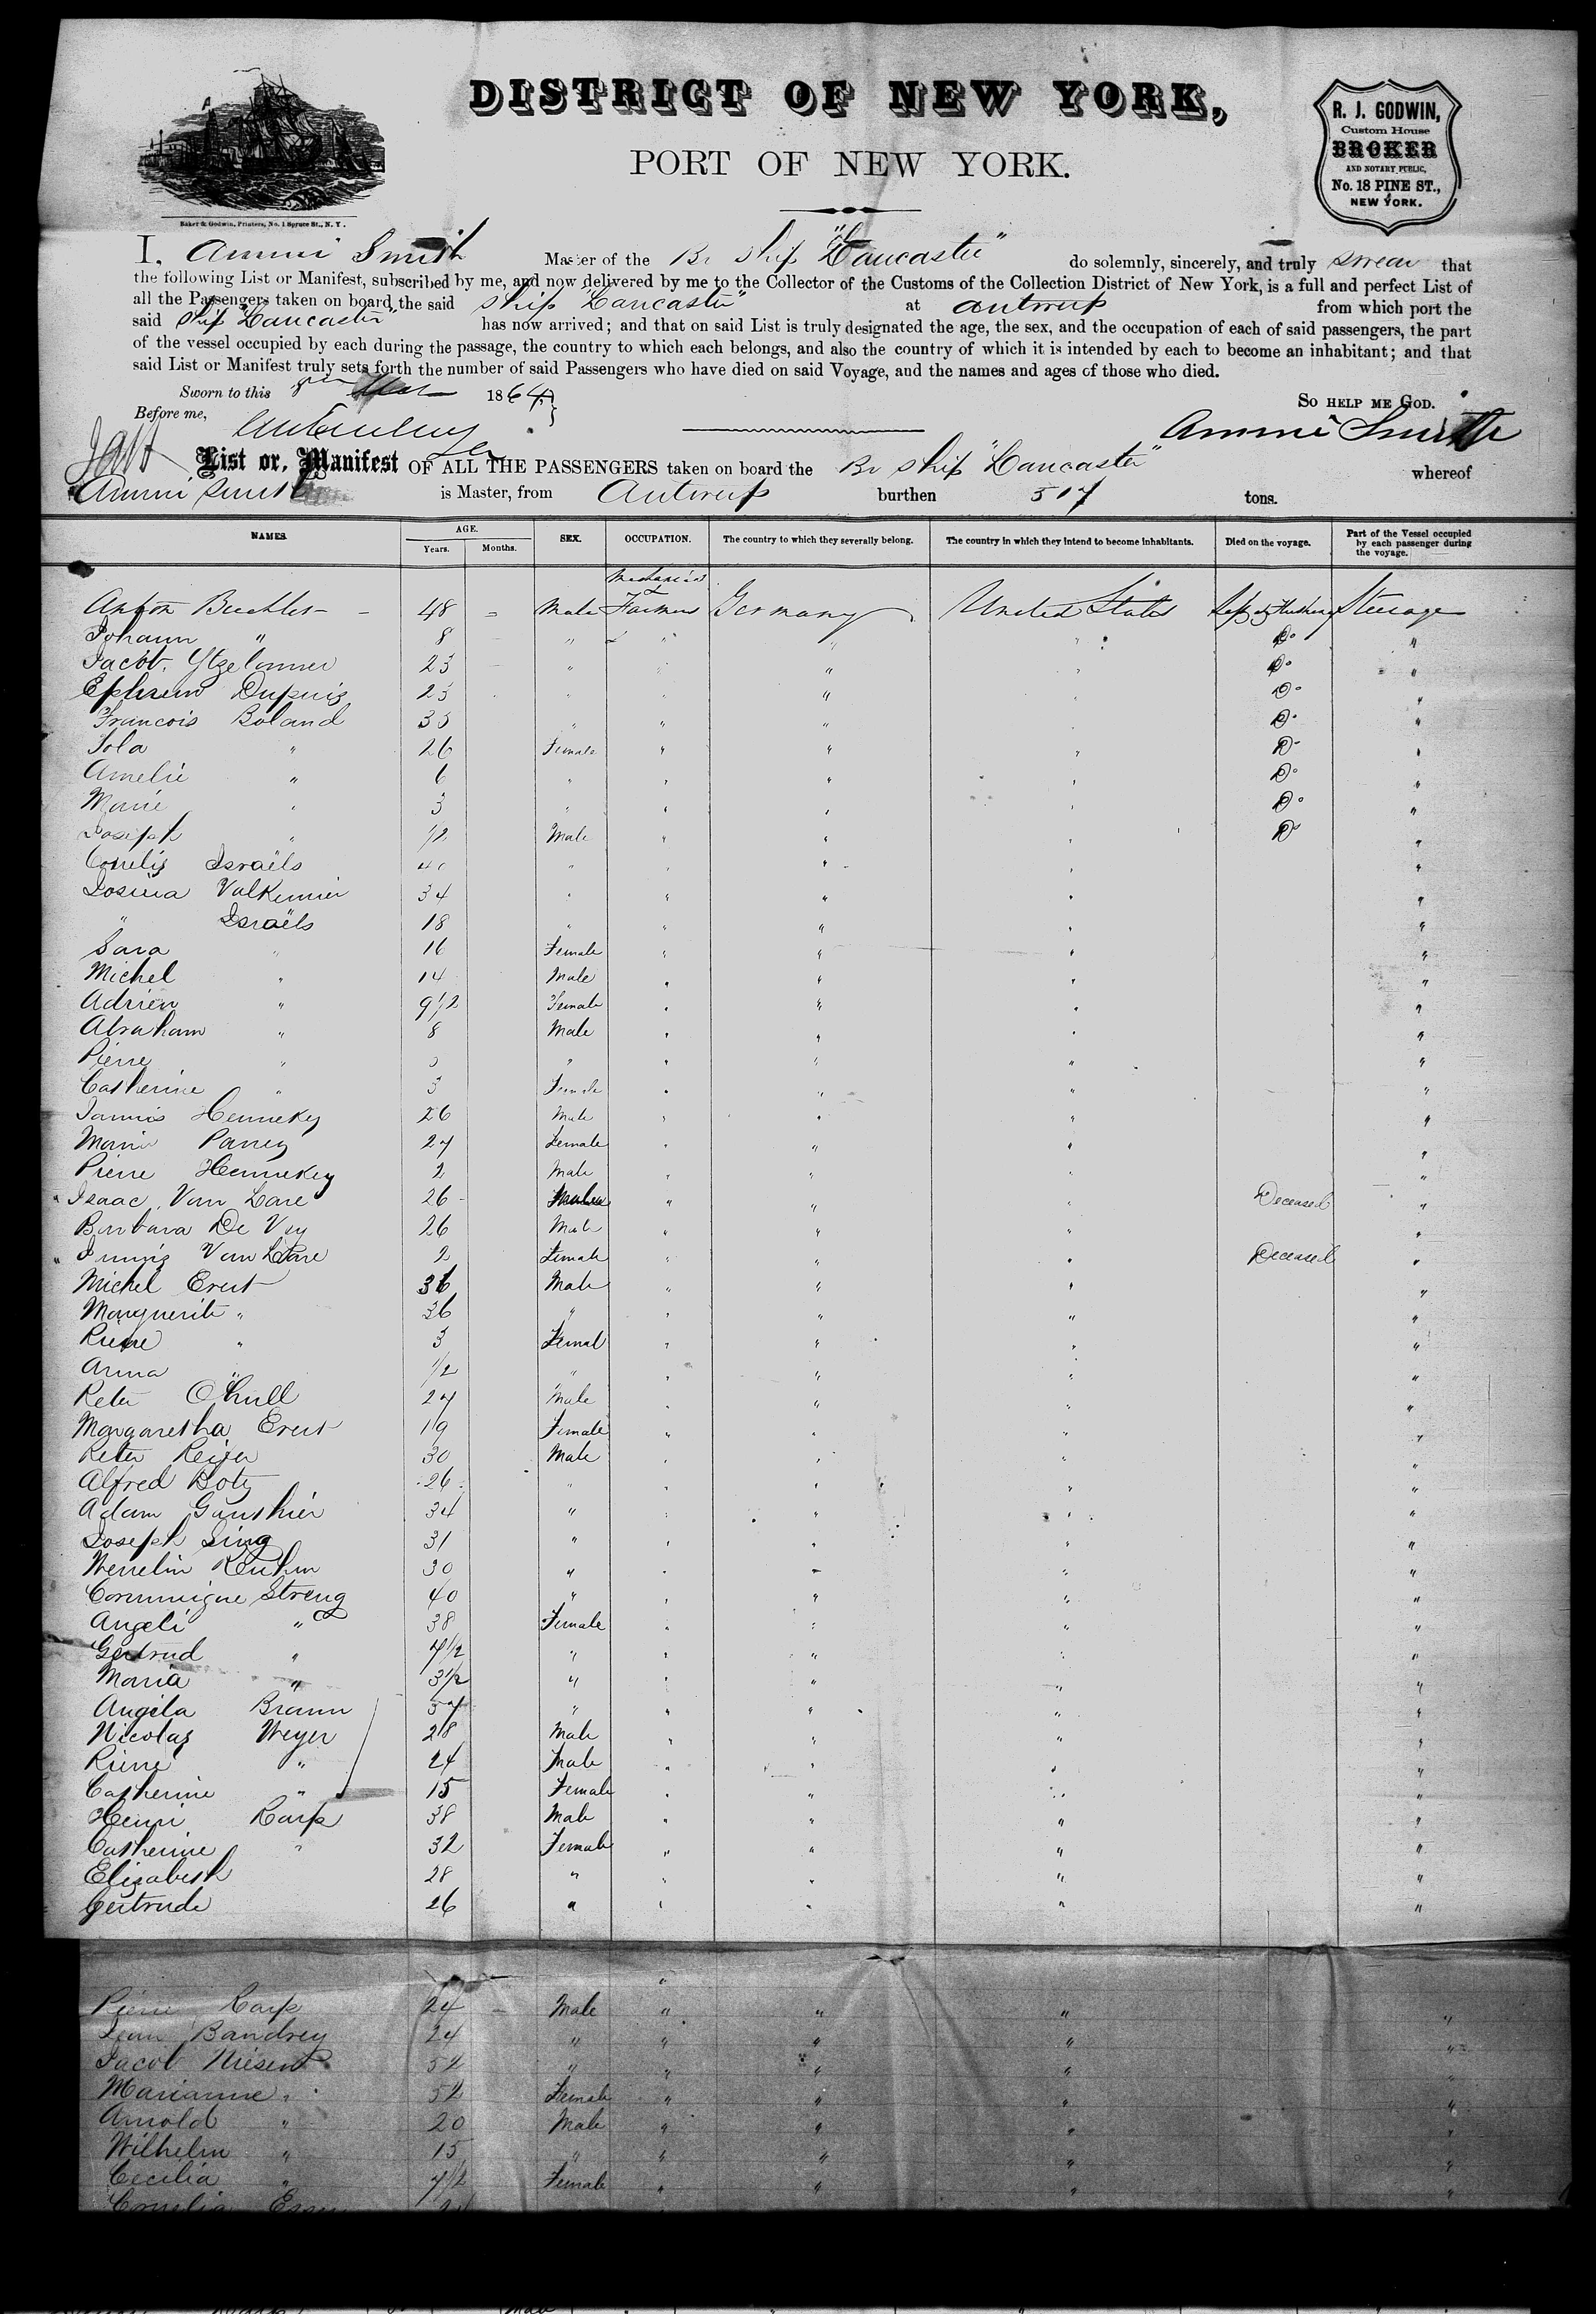 DISTRICT OF NEW YORK,
PORT OF NEW YORK.
R. J. GODWIN,
Custom House
BROKER
AND NOTARY PUBLIC,
No. 18 PINE ST.,
NEW YORK.
Baker & Godwin, Printers, No. 1 Spruce St., N. Y.
I, Ammi Smith Master of the Br Ship "Lancaster" do solemnly, sincerely, and truly swear that
the following List or Manifest, subscribed by me, and now delivered by me to the Collector of the Customs of the Collection District of New York, is a full and perfect List of
all the Passengers taken on board the said ship "Lancaster" at Antwerp from which port the
said ship "Lancaster" has now arrived; and that on said List is truly designated the age, the sex, and the occupation of each of said passengers, the part
of the vessel occupied by each during the passage, the country to which each belongs, and also the country of which it is intended by each to become an inhabitant; and that
said List or Manifest truly sets forth the number of said Passengers who have died on said Voyage, and the names and ages of those who died.
Sworn to this 1864
So HELP ME GOD.
Before me,
Ammi Smith
List or Manifest OF ALL THE PASSENGERS taken on board the Br Ship "Lancaster" whereof
Ammi Smith is Master, from Antwerp burthen 507 tons.
NAMES. AGE. Years. Months. SEX. OCCUPATION. The country to which they severally belong. The country in which they intend to become inhabitants. Died on the voyage. Part of the Vessel occupied by each passenger during the voyage.
Mechanics
Anton Buchler 48 Male Farmers Germany United States Steerage
Johann " 8 " " " " Do "
Jacob 23 " " " " Do "
Ephrem Dupuis 23 " " " " Do "
Francois Boland 35 " " " " Do "
Iola " 26 Female " " " Do "
Amelie " 6 " " " " Do "
Marie " 3 " " " " Do "
Joseph " 1/2 Male " " " Do "
Cornelis Israëls 40 " " " " "
Josina Valkenier 34 " " " " "
" Israëls 18 " " " " "
Sara " 16 Female " " " "
Michel " 14 Male " " " "
Adrien " 9 1/2 Female " " " "
Abraham " 8 Male " " " "
Pierre " " " " " "
Catherine " 3 Female " " " "
Jannis Hennekey 26 Male " " " "
Marie 27 Female " " " "
Pierre Hennekey 2 Male " " " "
Isaac Van Lare 26 " " " Deceased "
Barbara De Vey 26 Male " " " "
Jannis Van Lare 2 Female " " " Deceased "
Michel Erest 36 Male " " " "
Marguerite " 36 " " " " "
Pierre " 3 Femal " " " "
Anna " 1/2 " " " " "
Peter Ohull 27 Male " " " "
Margaretha Erest 19 Female " " " "
Peter 30 Male " " " "
Alfred Boty 26 " " " " "
Adam Gunthier 34 " " " " "
Joseph Sing 31 " " " " "
30 " " " " "
Streng 40 " " " " "
Angeli " 38 Female " " " "
Gertrud " 7 1/2 " " " " "
Maria " 3 1/2 " " " " "
Angela Braun 57 " " " " "
Nicolas Weyer 28 Male " " " "
Pierre " 24 Male " " " "
Catherine " 15 Female " " " "
Henri Karp 38 Male " " " "
Catherine " 32 Female " " " "
Elizabeth 28 " " " " "
Gertrude 26 " " " " "
Pierre Karp 24 Male " " " "
Jean Bandrey 24 " " " " "
Jacob Niesen 52 " " " " "
Marianne " 52 Female " " " "
Arnold " 20 Male " " " "
Wilhelm " 15 " " " " "
Cecilia " 7 1/2 Female " " " "
Cornelia